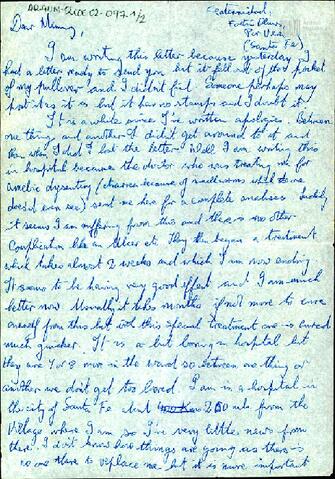 ARAHM-CLDE 02-097 1/2
Fortin Olmos,
Per Vera
(Santa Fe)
Dear Mimmy,
I am writing this letter because yesterday I
had a letter ready to send you but it fell out of the pocket
of my pullover and I didn't find. Someone perhaps may
post it as it is but it has no stamps and I doubt it!
It is a while since I've written apologies. Between
one thing and another I didn't get around to it and
then when I did I lost the letter! Well I am writing this
in hospital because the doctor who was treating me for
amebic dysentery (because of
doesn't even see) sent me here for a complete analises. Luckily
it seems I am suffering from this and there is no other
complication like an ulcer etc. They then began a treatment
which takes almost 2 weeks and which I am now ending
It seems to be having very good effect and I am much
better now. Usually it takes months if not more to cure
oneself from this but with this special treatment one is cured
much quicker. It is a bit boring in hospital but
they are 7 or 8 more in the ward so between one thing or
another we don't get too bored. I am in a hospital in
the city of Santa Fe about 200 mls from the
village where I am so I've very little news from
there. I don't know how things are going as there is
no one there to replace me but it is more important